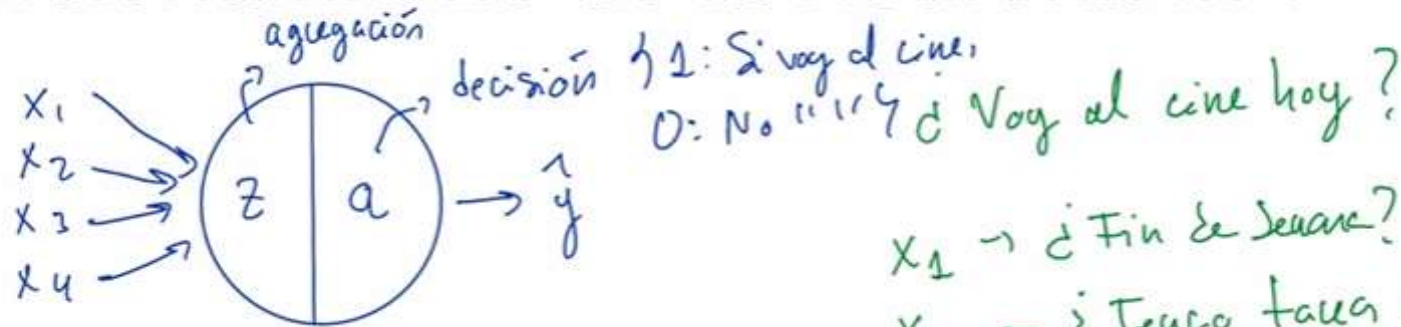 agregación
decisión {1: Si voy al cine,
0: No " " "} ¿Voy al cine hoy?
x1
x2
x3
x4
z a → ŷ
x1 → ¿Fin de Semana?
¿Tengo tarea